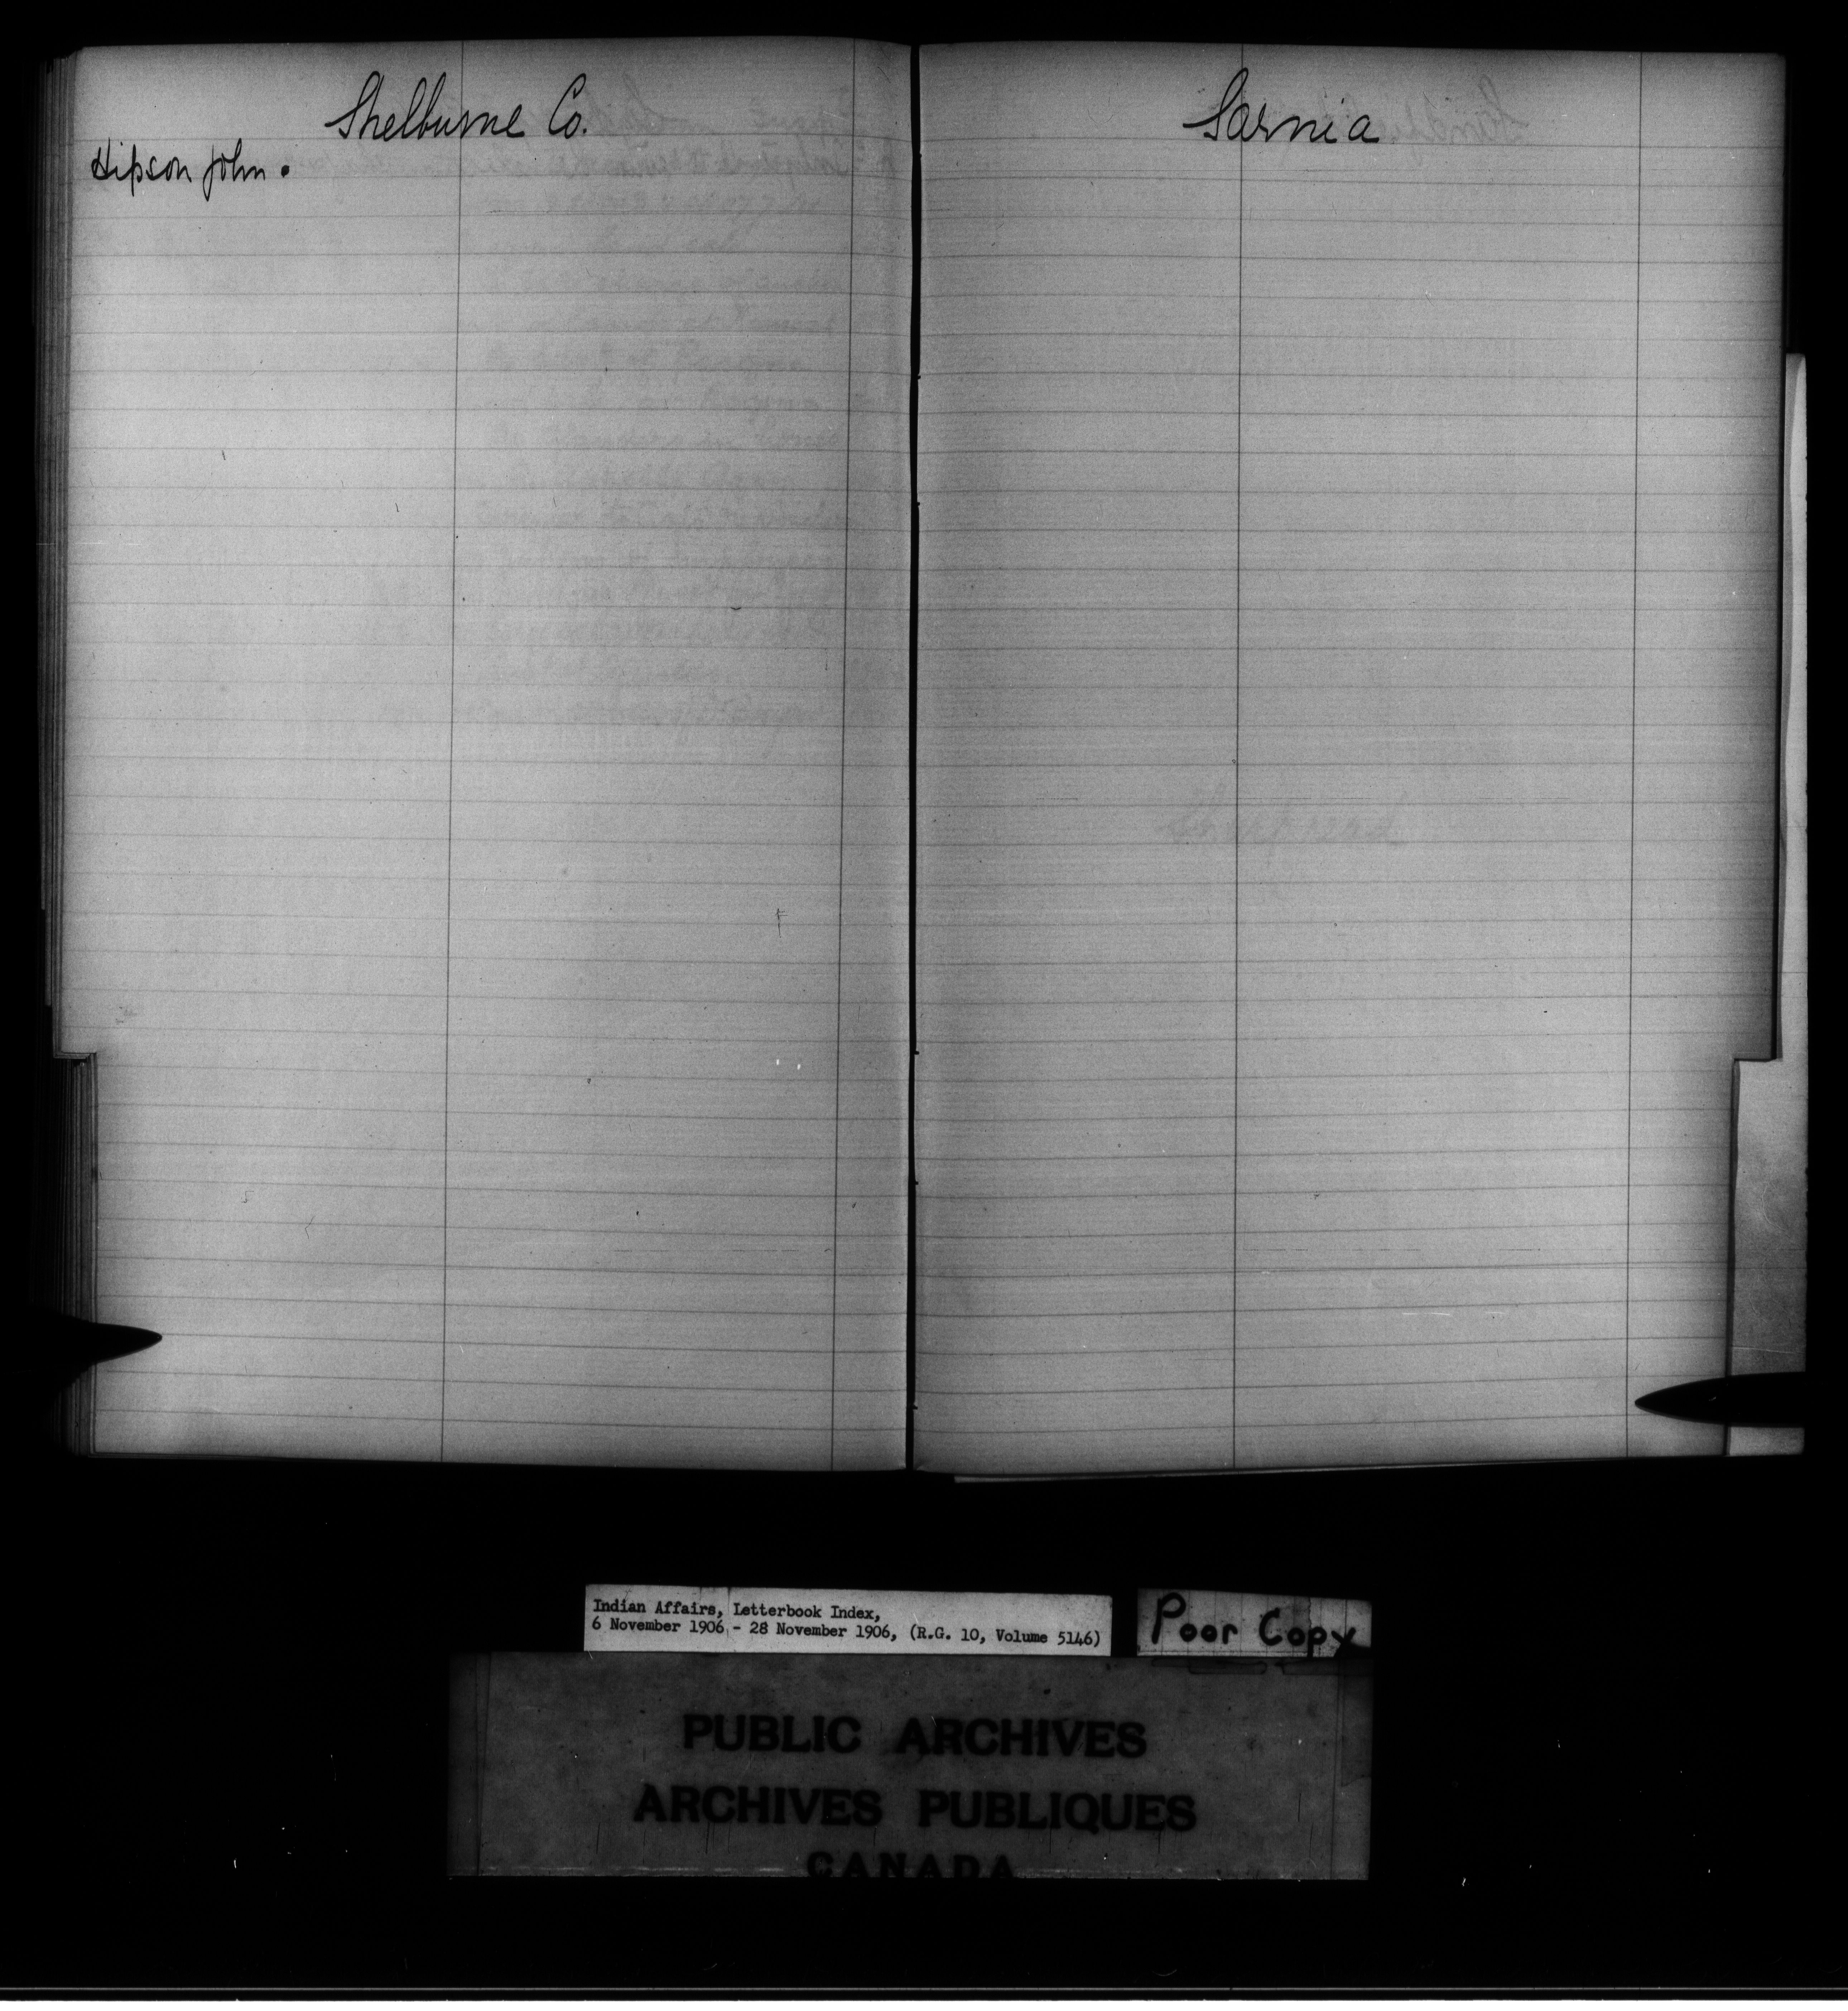 Shelburne Co.
Hipson John.
Sarnia
Indian Affairs, Letterbook Index,
6 November 1906 - 28 November 1906, (R.G. 10, Volume 5146)
Poor Copy
PUBLIC ARCHIVES
ARCHIVES PUBLIQUES
CANADA